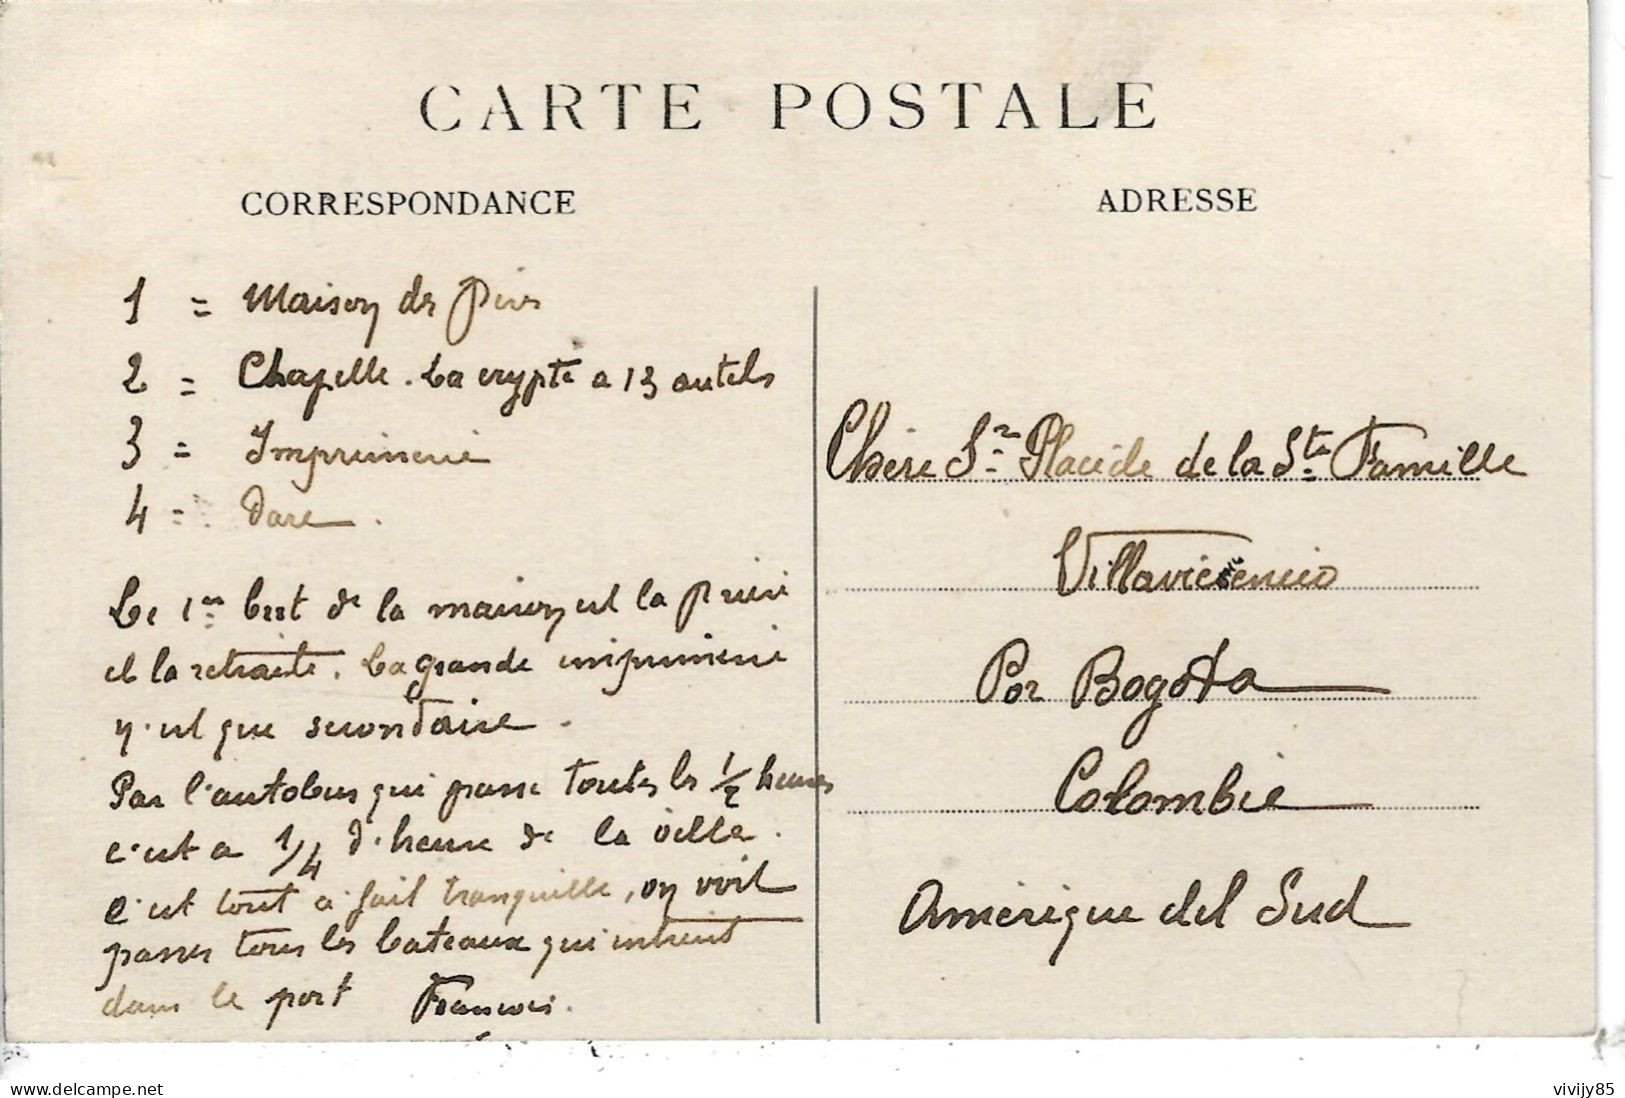 CARTE POSTALE
CORRESPONDANCE
ADRESSE
1 = Maison des pères
2 = Chapelle. La crypte a 13 autels
3 = Imprimerie
4 = Parc.
Le 1er but de la maison est la prière
et la retraite. La grande imprimerie
n'est que secondaire.
Par l'autobus qui passe toutes les 1/2 heures
c'est a 1/4 d'heure de la ville.
C'est tout a fait tranquille, on voit
passer tous les bateaux qui entrent
dans le port François.
Chère Sr Placide de la Ste Famille
Villavicencio
Por Bogota
Colombie
Amérique del Sud
delcampe.net
vivijy85